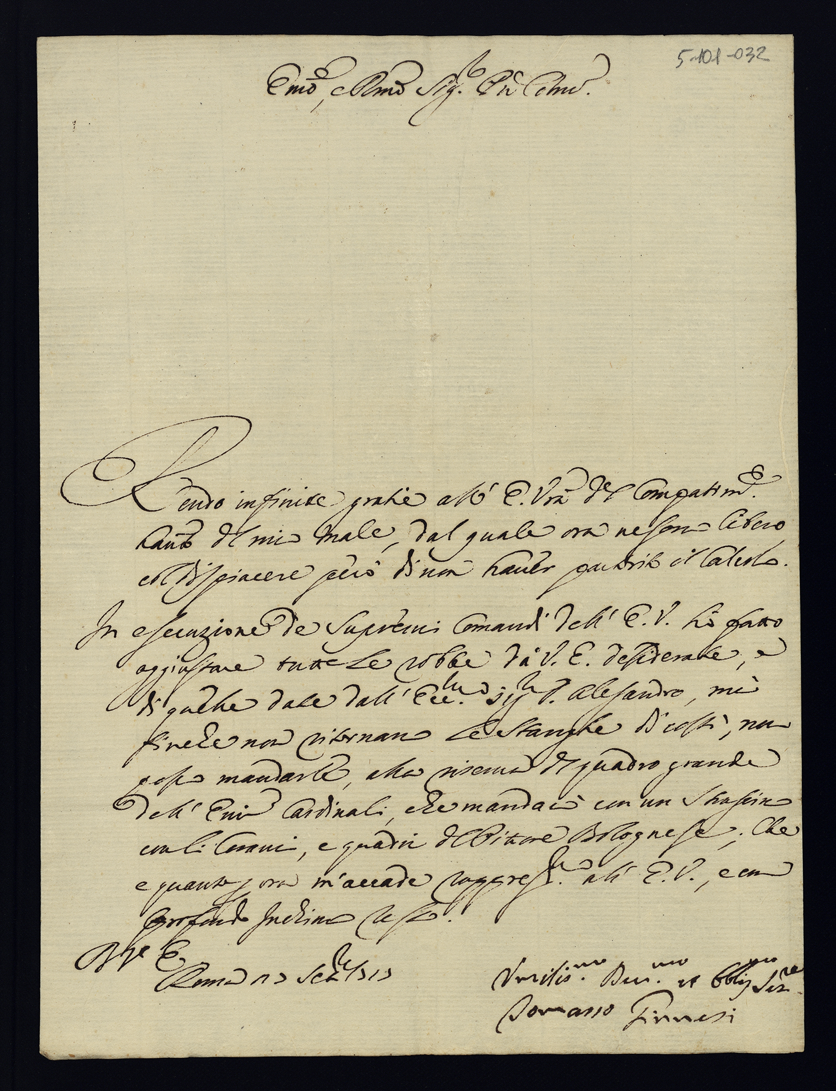 5-101-032
Emo, e Rmo Sig.r Pn Colmo.
Rendo infinite gratie all' E. Vra del Compatimto.
hauto del mio male, dal quale ora ne son libero
col dispiacere però di non hauer partorito il Calcolo.
In esecuzione de Supremi Comandi dell' E. V. hò fatto
aggiustare tutte le robbe dà V. E. desiderate, e
di quelle date dall' Ecc.mo Sig.r P. Alesandro, mà
finche non ritornano le Stanghe di costì, non
posso mandarle, alla riserva del quadro grande
dell' Emi Cardinali, che mandarò con un Strascino
con li Cerauni, e quadri del Pittore Bolognese; Che
e quanto p ora m'accade rappresre. all' E. V., e con
profondo Inchino resto.
Di V. E.
Roma
Umiliss.mo Deu.mo et Obblig.mo Ser.re
Tomasso